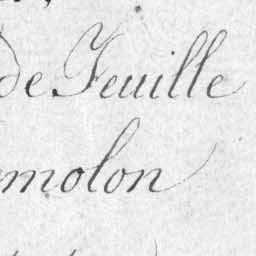 de Feuille
molon